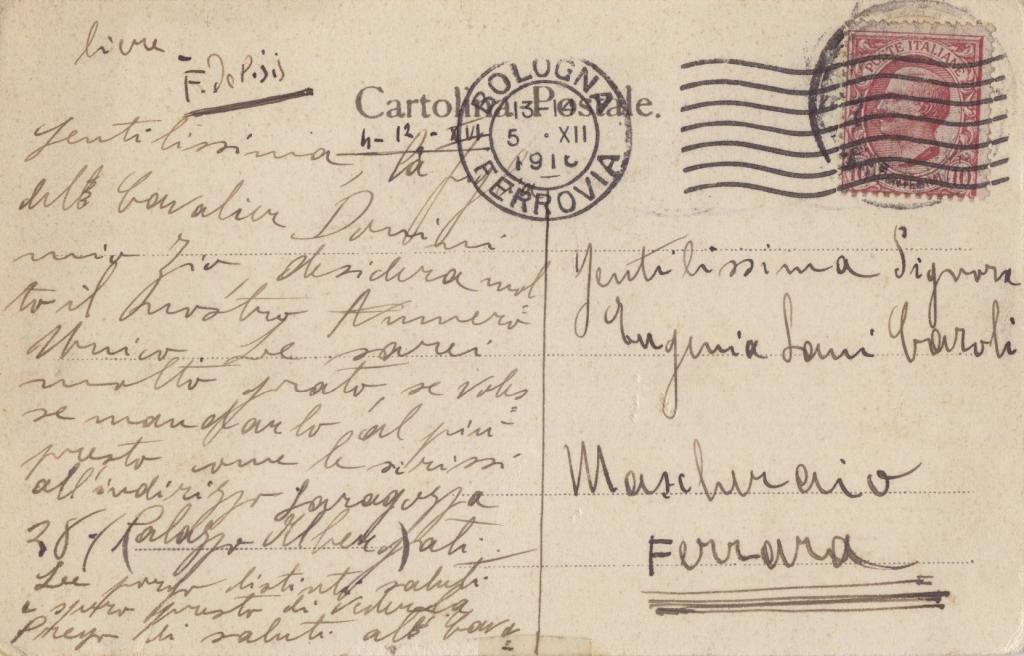 livre
F. De Pisis
Cartolina Postale.
4-12-XVI
BOLOGNA
13-14
5 · XII
1916
FERROVIA
POSTE ITALIANE
10
Gentilissima, la
della Cavalier Donini
mio Zio, desidera mol=
to il nostro Numero=
Unico. Le sarei
molto grato, se voles=
se mandarlo al più
presto come le scrissi
all'indirizzo Saragozza
28-(Palazzo Albergati)
Le porgo distinti saluti
e spero presto di vederla
Prego di saluti alla Cara
Gentilissima Signora
Eugenia Sani Caroli
Mascheraio
Ferrara